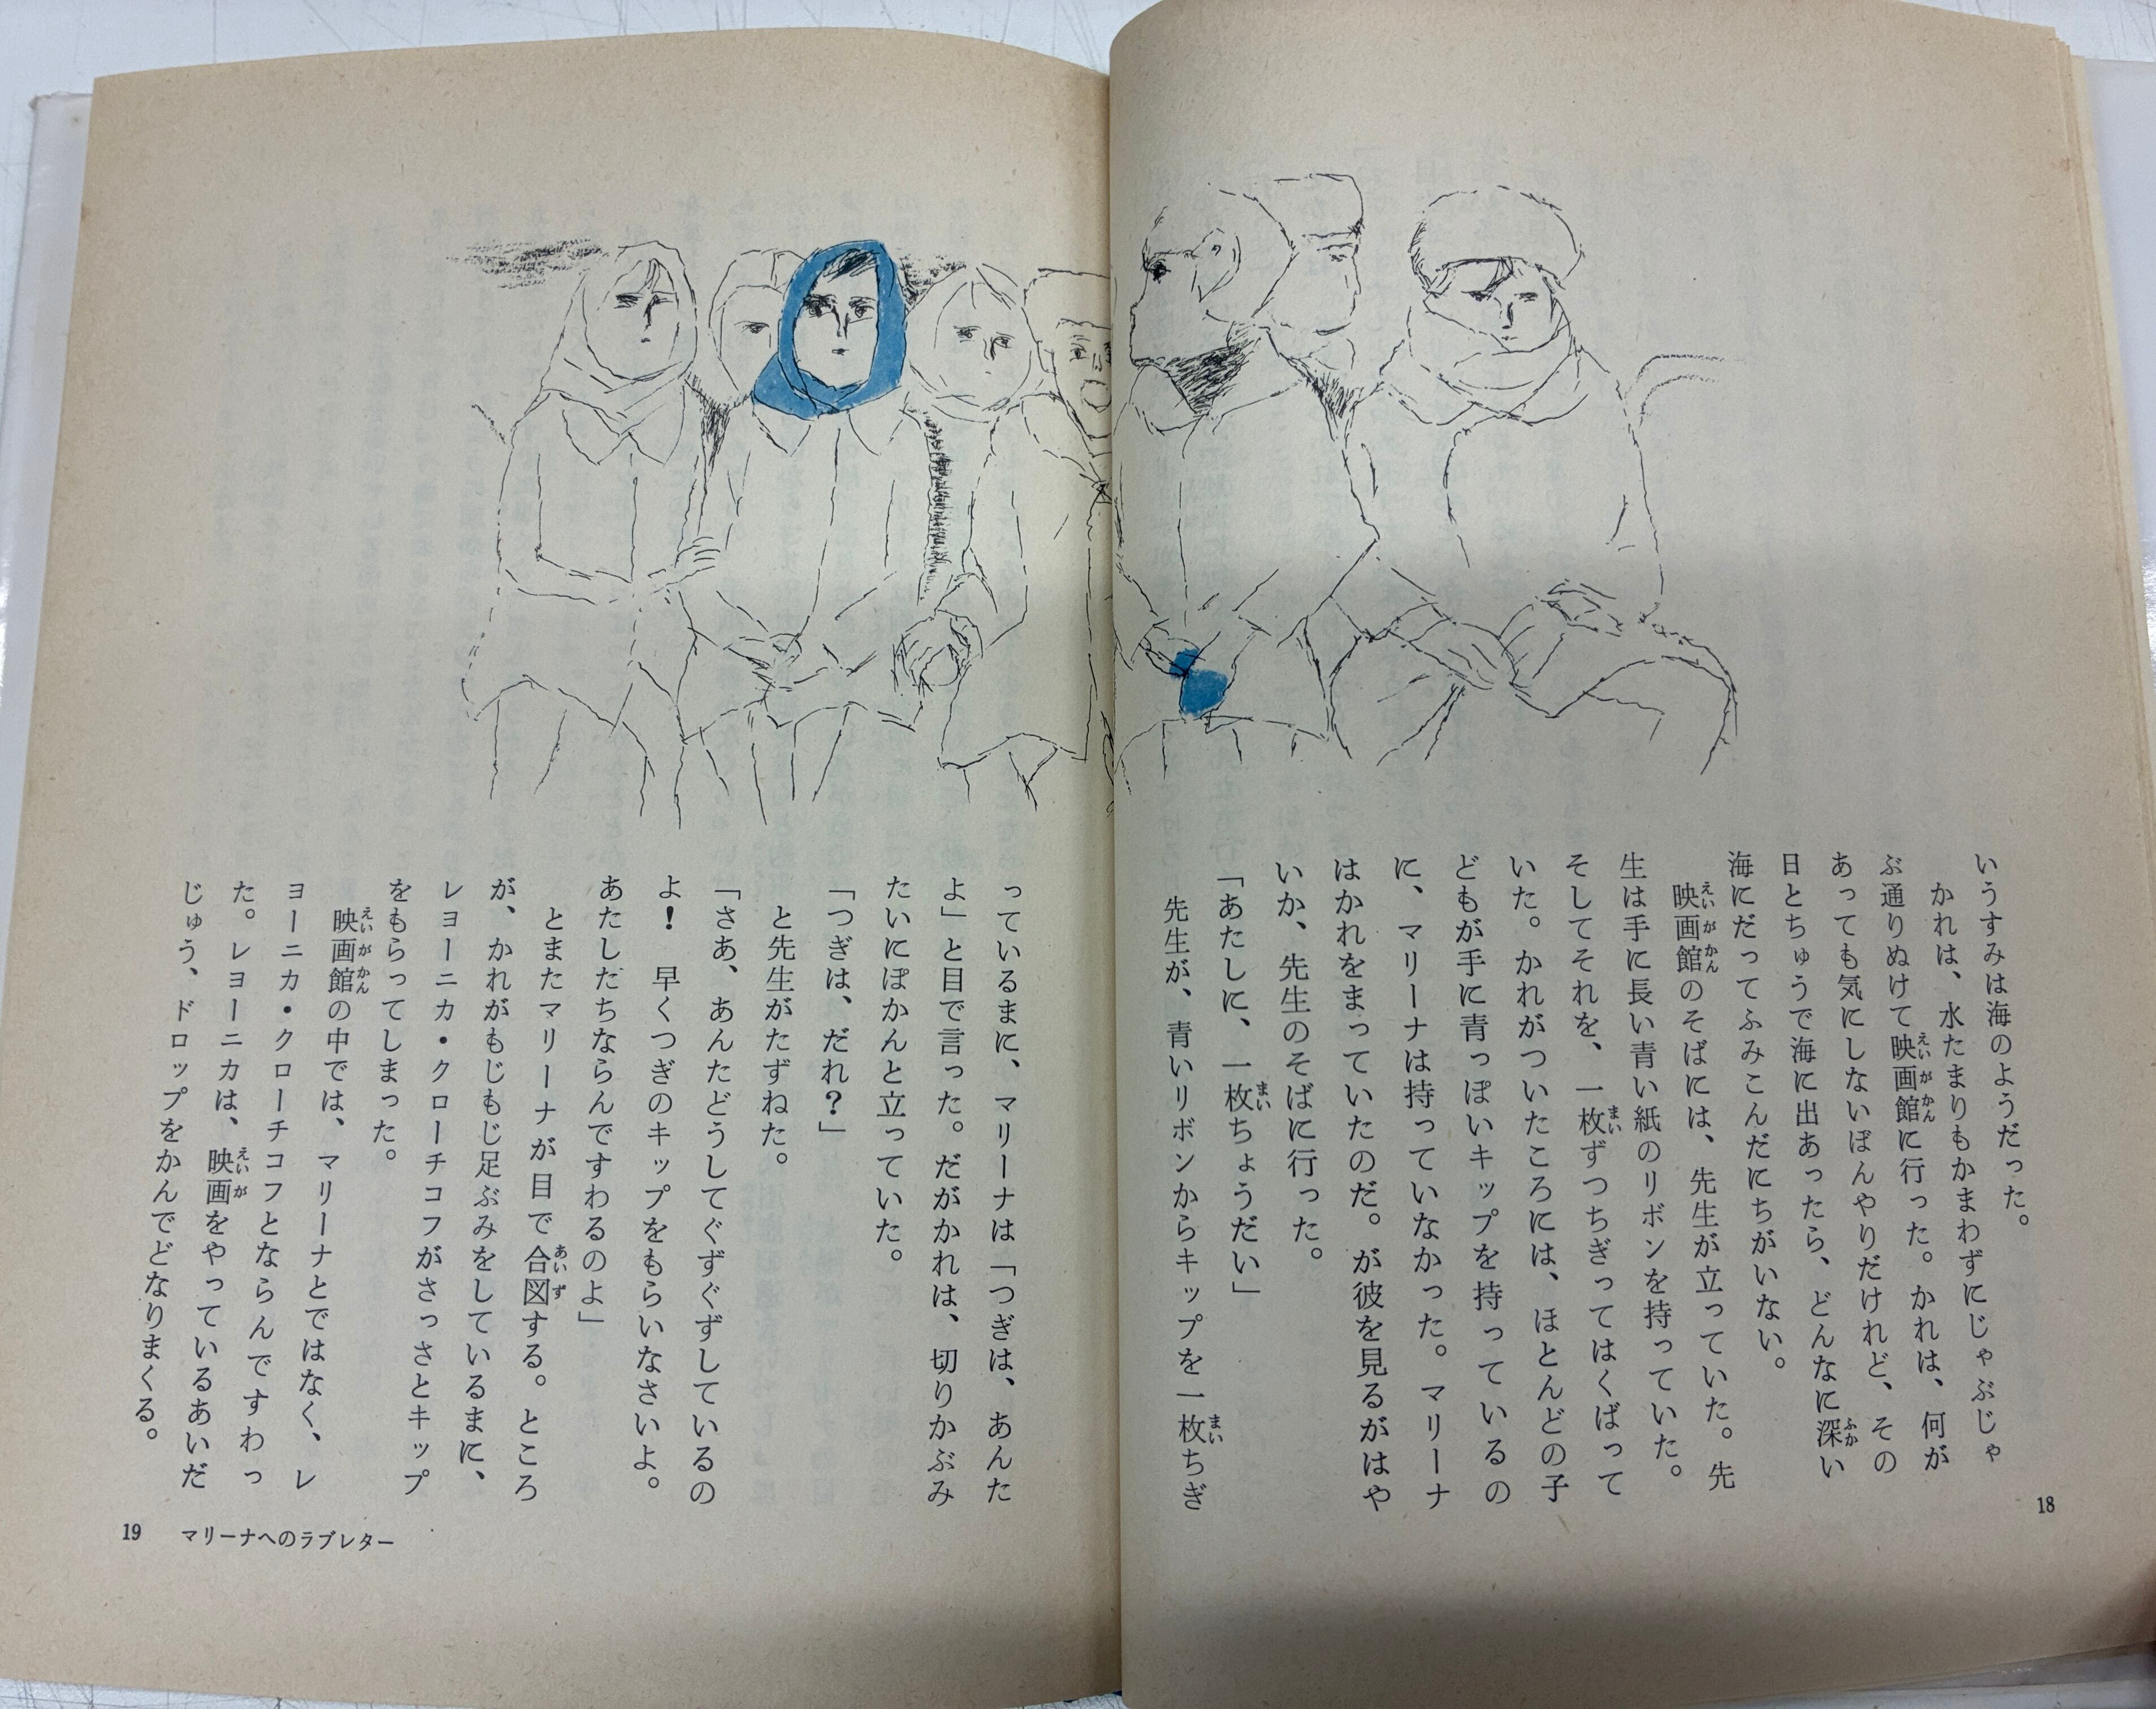 いうすみは海のようだった。
かれは、水たまりもかまわずにじゃぶじゃ
ぶ通りぬけて映画館に行った。かれは、何が
あっても気にしないぼんやりだけれど、その
日とちゅうで海に出あったら、どんなに深い
海にだってふみこんだにちがいない。
映画館のそばには、先生が立っていた。先
生は手に長い青い紙のリボンを持っていた。
そしてそれを、一枚ずつちぎってはくばって
いた。かれがついたころには、ほとんどの子
どもが手に青っぽいキップを持っているの
に、マリーナは持っていなかった。マリーナ
はかれをまっていたのだ。が彼を見るがはや
いか、先生のそばに行った。
「あたしに、一枚ちょうだい」
先生が、青いリボンからキップを一枚ちぎ
18
っているまに、マリーナは「つぎは、あんた
よ」と目で言った。だがかれは、切りかぶみ
たいにぽかんと立っていた。
「つぎは、だれ？」
と先生がたずねた。
「さあ、あんたどうしてぐずぐずしているの
よ！　早くつぎのキップをもらいなさいよ。
あたしたちならんですわるのよ」
とまたマリーナが目で合図する。ところ
が、かれがもじもじ足ぶみをしているまに、
レヨーニカ・クローチコフがさっさとキップ
をもらってしまった。
映画館の中では、マリーナとではなく、レ
ヨーニカ・クローチコフとならんですわっ
た。レヨーニカは、映画をやっているあいだ
じゅう、ドロップをかんでどなりまくる。
19 マリーナへのラブレター